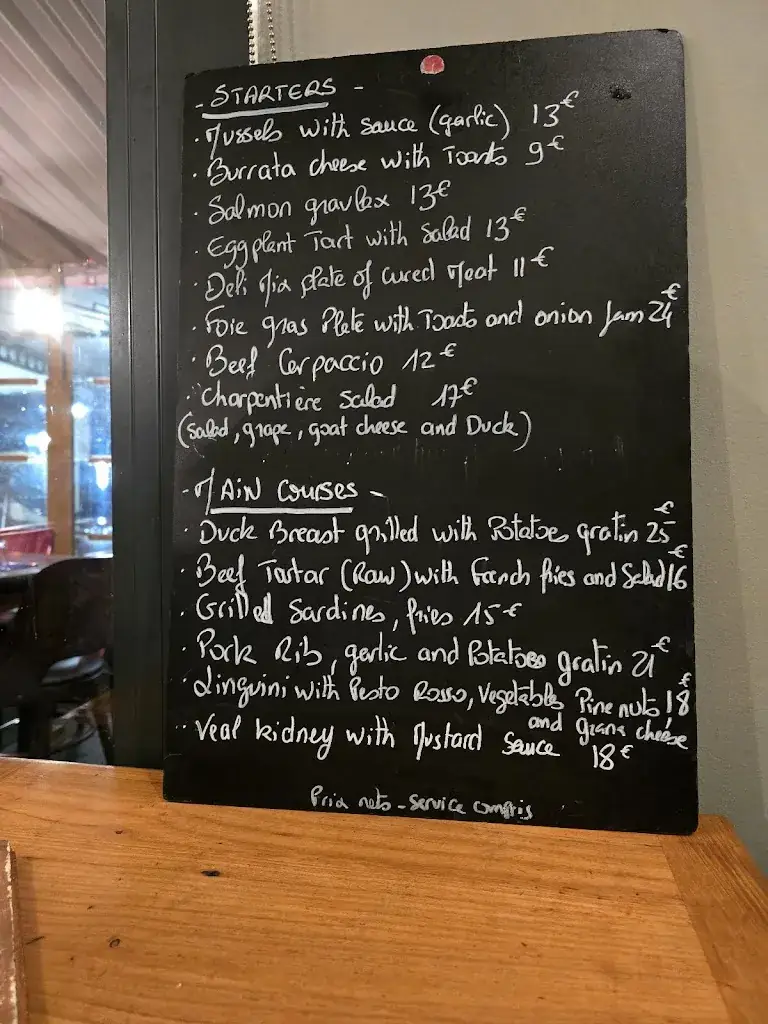 - STARTERS -
· Mussels with sauce (garlic) 13€
· Burrata cheese with Toasts 9€
· Salmon gravlax 13€
· Eggplant Tart with Salad 13€
· Deli Mix plate of cured Meat 11€
· Foie gras Plate with Toasts and onion Jam 24€
· Beef Carpaccio 12€
· Charpentière salad 17€
(Salad, grape, goat cheese and Duck)
- MAIN COURSES -
· Duck Breast grilled with Potatoe gratin 25€
· Beef Tartar (Raw) with French fries and Salad 16€
· Grilled Sardines, fries 15€
· Pork Rib, garlic and Potatoes gratin 21€
· Linguini with Pesto Rosso, Vegetables Pine nuts 18€
and grana cheese
· Veal kidney with Mustard Sauce 18€
Prix nets - Service compris